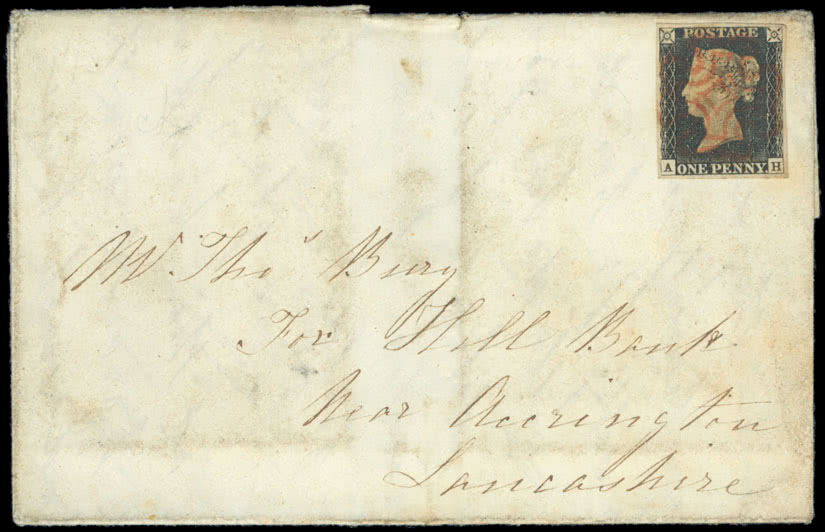 POSTAGE
A ONE PENNY H
Mr. Thos Bury
For Hill Bank
Near Accrington
Lancashire